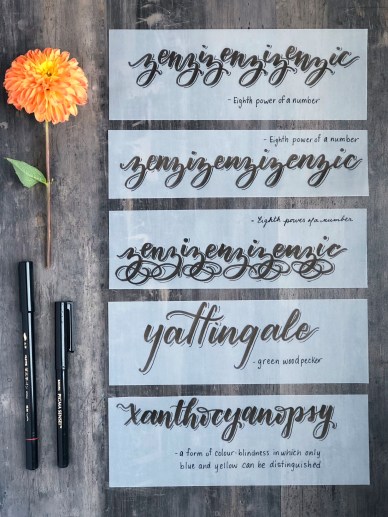 zenzizenzizenzic
- Eighth power of a number
- Eighth power of a number
zenzizenzizenzic
- Eighth power of a number
zenzizenzizenzic
yaffingale
- green woodpecker
xanthocyanopsy
- a form of colour-blindness in which only
blue and yellow can be distinguished